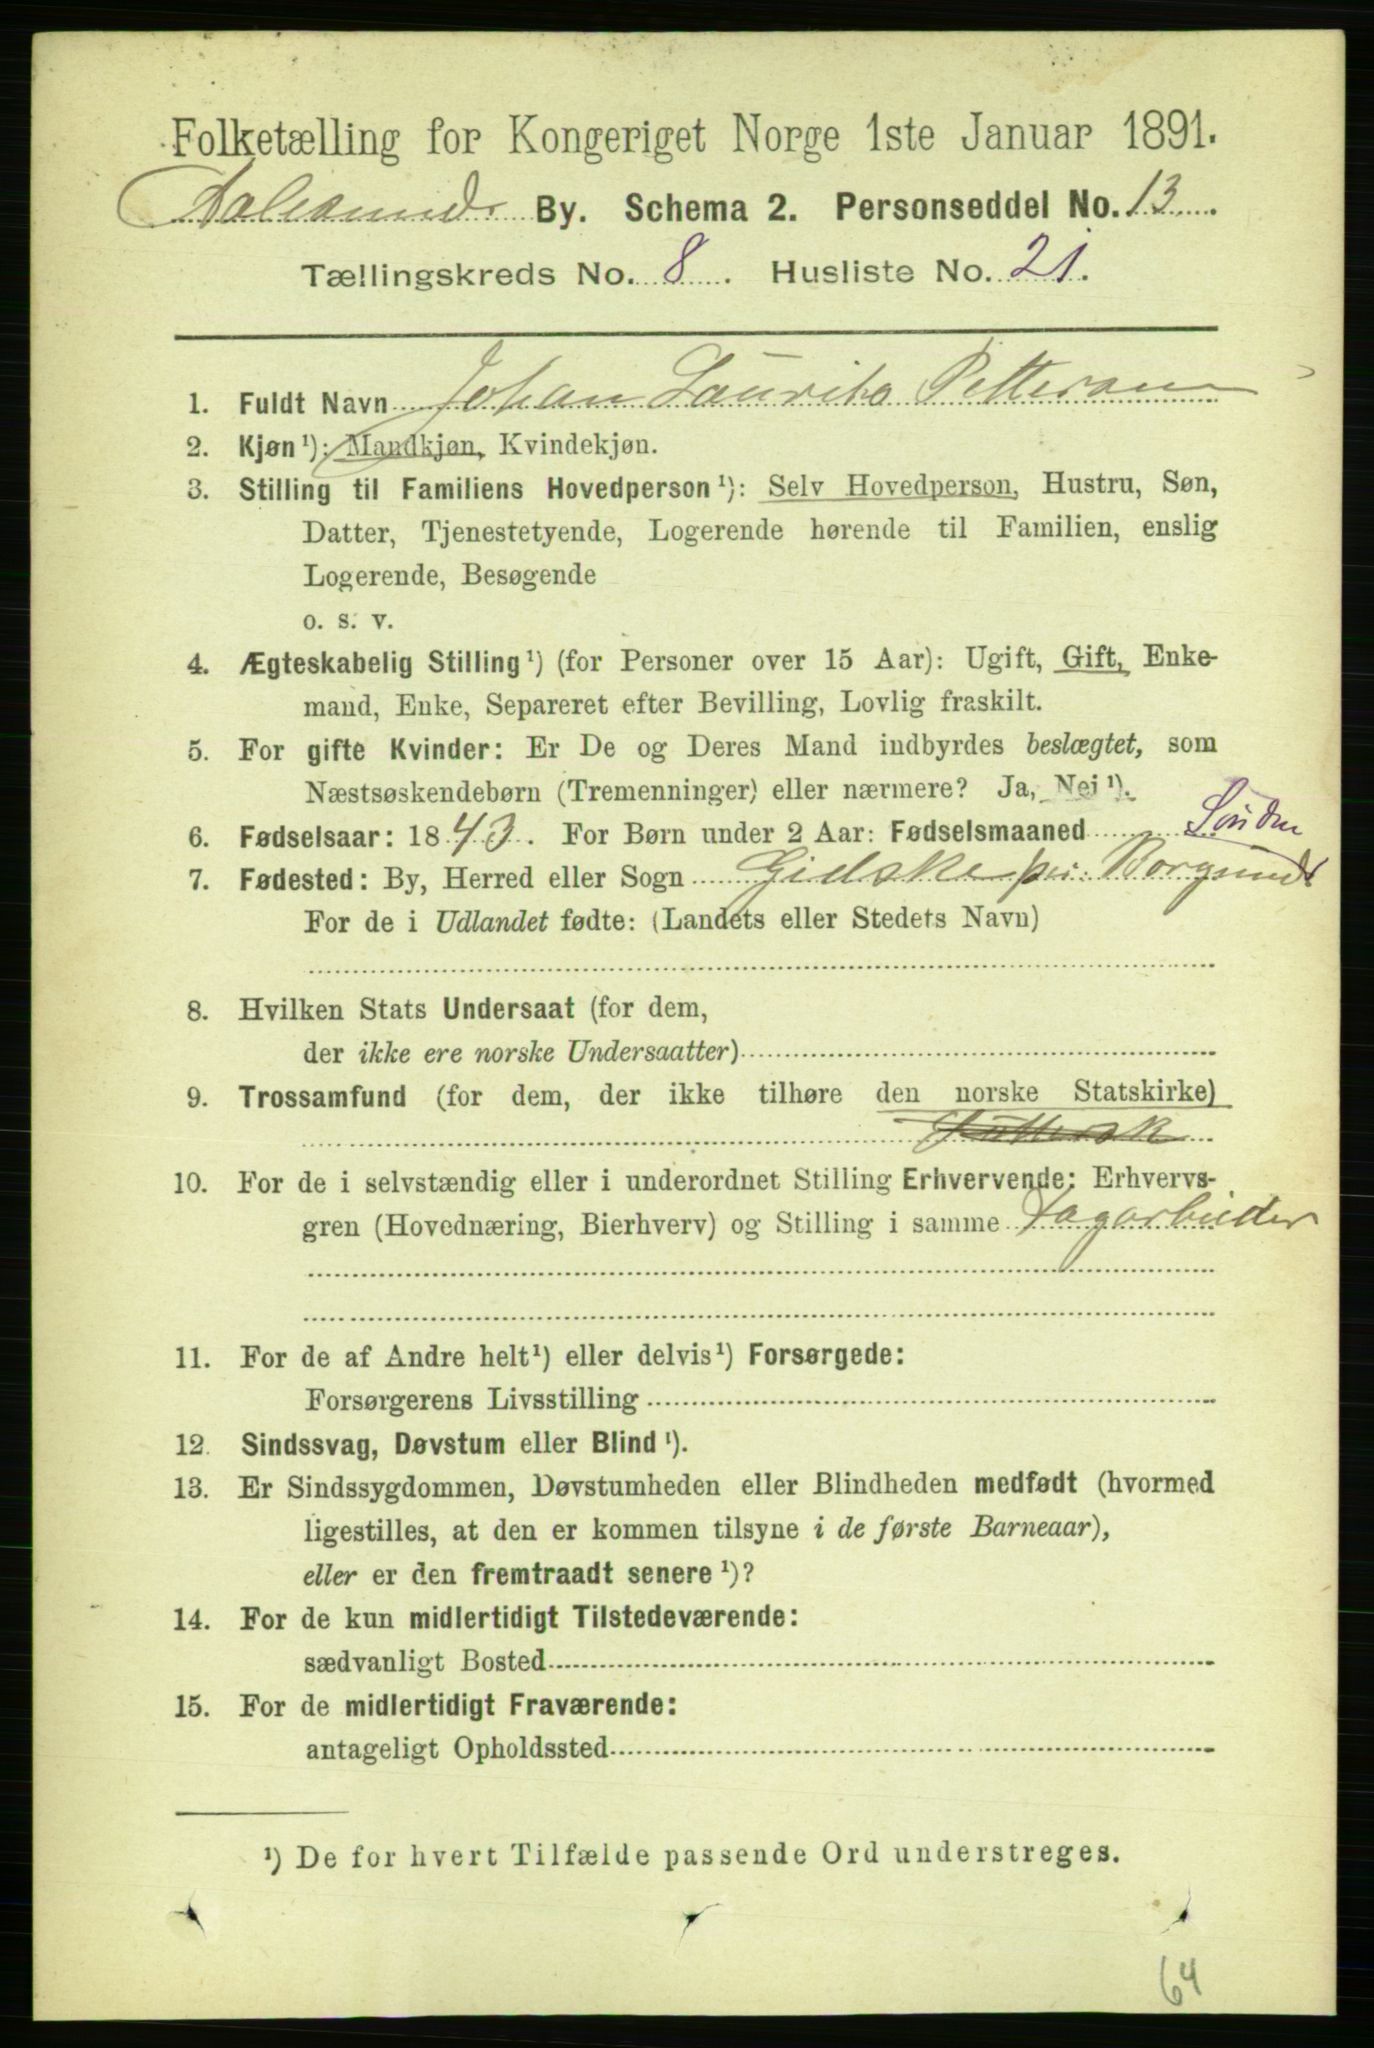 Folketælling for Kongeriget Norge 1ste Januar 1891.
Aalesunds By. Schema 2. Personseddel No. 13
Tællingskreds No. 8. Husliste No. 21.
1. Fuldt Navn Johan Laurits Petterson
2. Kjøn¹): Mandkjøn, Kvindekjøn.
3. Stilling til Familiens Hovedperson¹): Selv Hovedperson, Hustru, Søn,
Datter, Tjenestetyende, Logerende hørende til Familien, enslig
Logerende, Besøgende
o. s. v.
4. Ægteskabelig Stilling¹) (for Personer over 15 Aar): Ugift, Gift, Enke-
mand, Enke, Separeret efter Bevilling, Lovlig fraskilt.
5. For gifte Kvinder: Er De og Deres Mand indbyrdes beslægtet, som
Næstsøskendebørn (Tremenninger) eller nærmere? Ja, Nei¹).
6. Fødselsaar: 1843. For Børn under 2 Aar: Fødselsmaaned
7. Fødested: By, Herred eller Sogn Gidske pr. Borgund
For de i Udlandet fødte: (Landets eller Stedets Navn)
8. Hvilken Stats Undersaat (for dem,
der ikke ere norske Undersaatter)
9. Trossamfund (for dem, der ikke tilhøre den norske Statskirke)
Luttersk
10. For de i selvstændig eller i underordnet Stilling Erhvervende: Erhvervs-
gren (Hovednæring, Bierhverv) og Stilling i samme
11. For de af Andre helt¹) eller delvis¹) Forsørgede:
Forsørgerens Livsstilling
12. Sindssvag, Døvstum eller Blind¹).
13. Er Sindssygdommen, Døvstumheden eller Blindheden medfødt (hvormed
ligestilles, at den er kommen tilsyne i de første Barneaar),
eller er den fremtraadt senere¹)?
14. For de kun midlertidigt Tilstedeværende:
sædvanligt Bosted
15. For de midlertidigt Fraværende:
antageligt Opholdssted
¹) De for hvert Tilfælde passende Ord understreges.
64